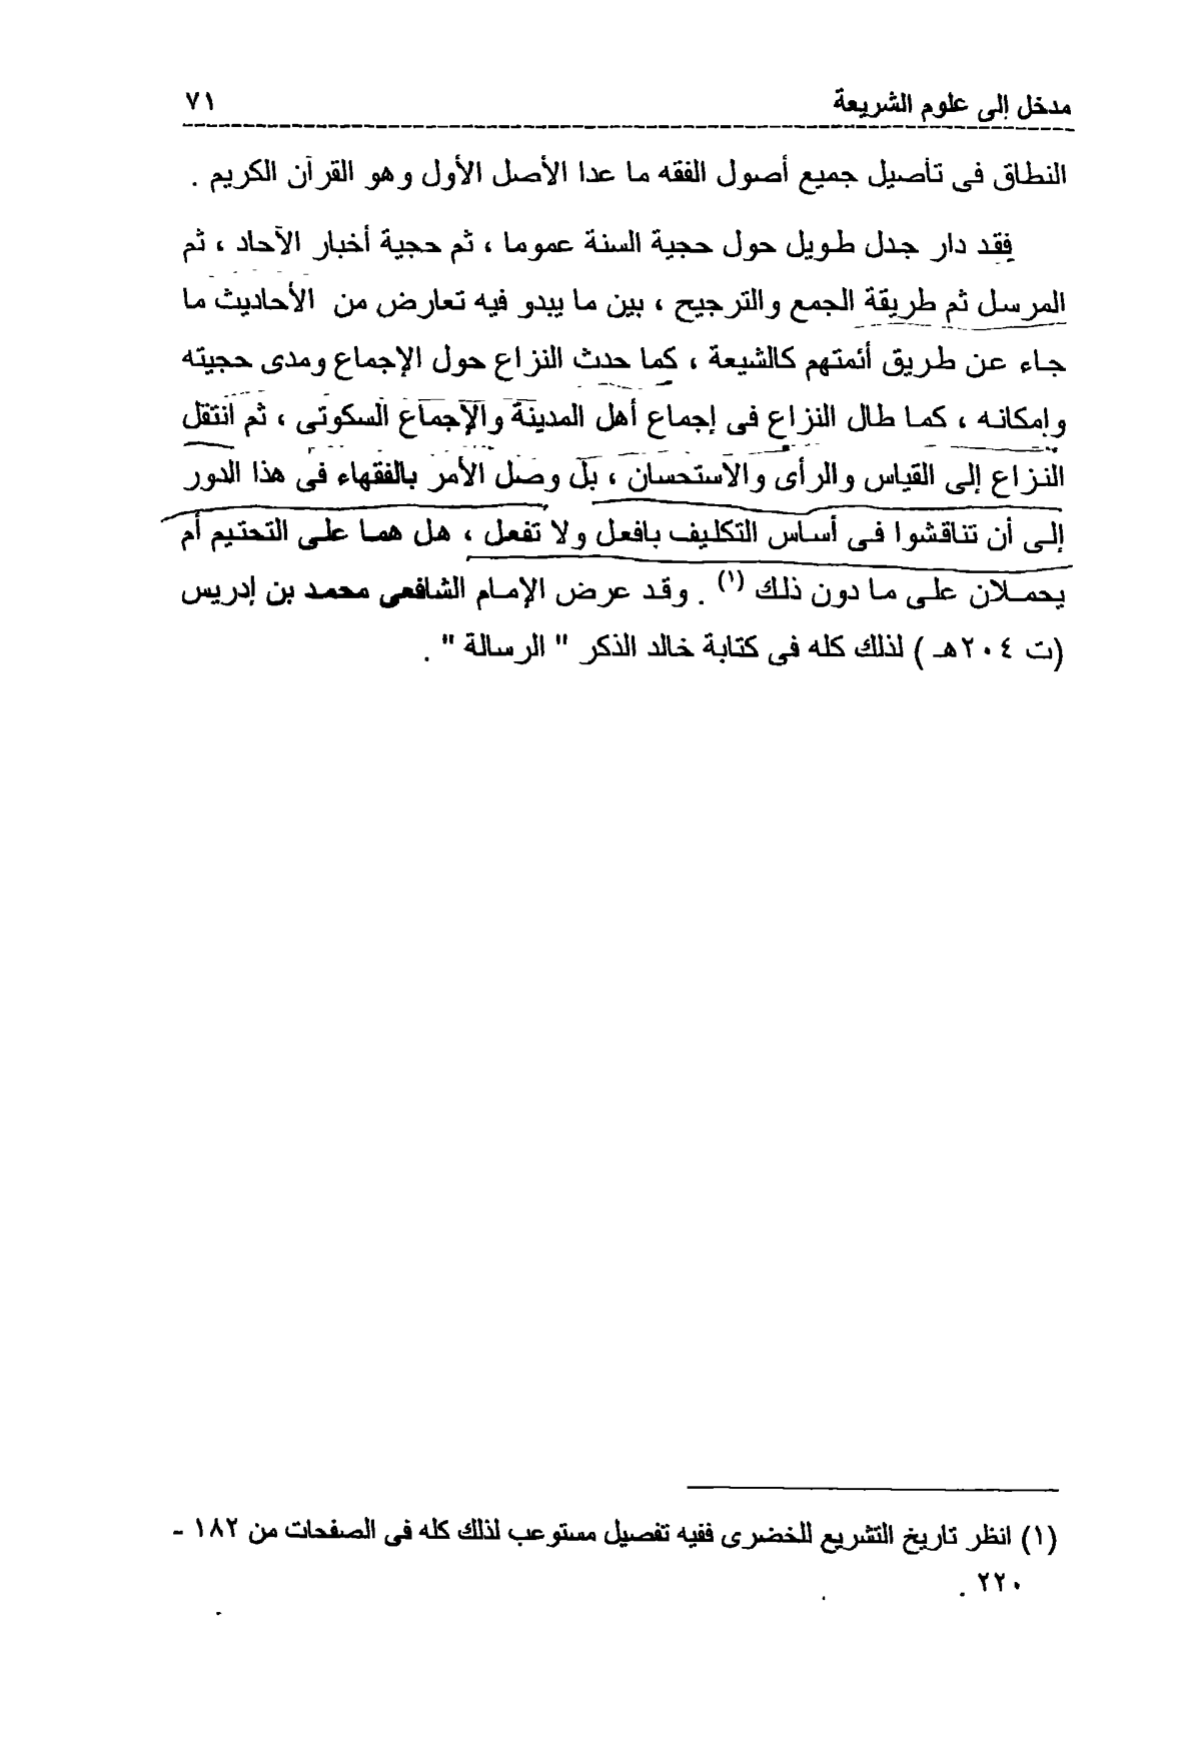 مدخل إلى علوم الشريعة ٧١
النطاق فى تأصيل جميع أصول الفقه ما عدا الأصل الأول وهو القرآن الكريم .
فقد دار جدل طويل حول حجية السنة عموما ، ثم حجية أخبار الآحاد ، ثم
المرسل ثم طريقة الجمع والترجيح ، بين ما يبدو فيه تعارض من الأحاديث ما
جاء عن طريق أئمتهم كالشيعة ، كما حدث النزاع حول الإجماع ومدى حجيته
وإمكانه ، كما طال النزاع فى إجماع أهل المدينة والإجماع السكوتى ، ثم انتقل
النزاع إلى القياس والرأى والاستحسان ، بل وصل الأمر بالفقهاء فى هذا الدور
إلى أن تناقشوا فى أساس التكليف بافعل ولا تفعل ، هل هما على التحتيم أم
يحملان على ما دون ذلك (١) . وقد عرض الإمام الشافعى محمد بن إدريس
(ت ٢٠٤هـ ) لذلك كله فى كتابة خالد الذكر " الرسالة " .
(١) انظر تاريخ التشريع للخضرى ففيه تفصيل مستوعب لذلك كله فى الصفحات من ١٨٢ -
٢٢٠ .